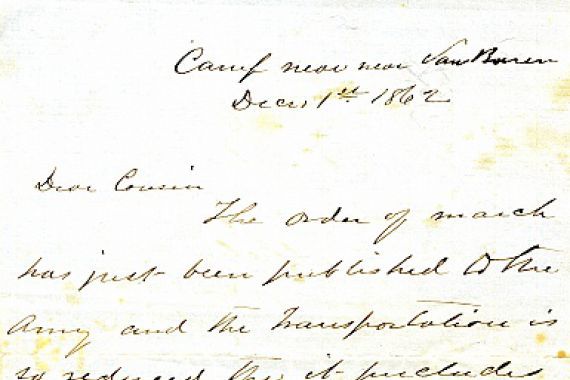 Camp near near Van Buren
Decr. 1st 1862
Dear Cousin
The order of march
has just been published to the
Army and the Transportation is
so reduced that it precludes